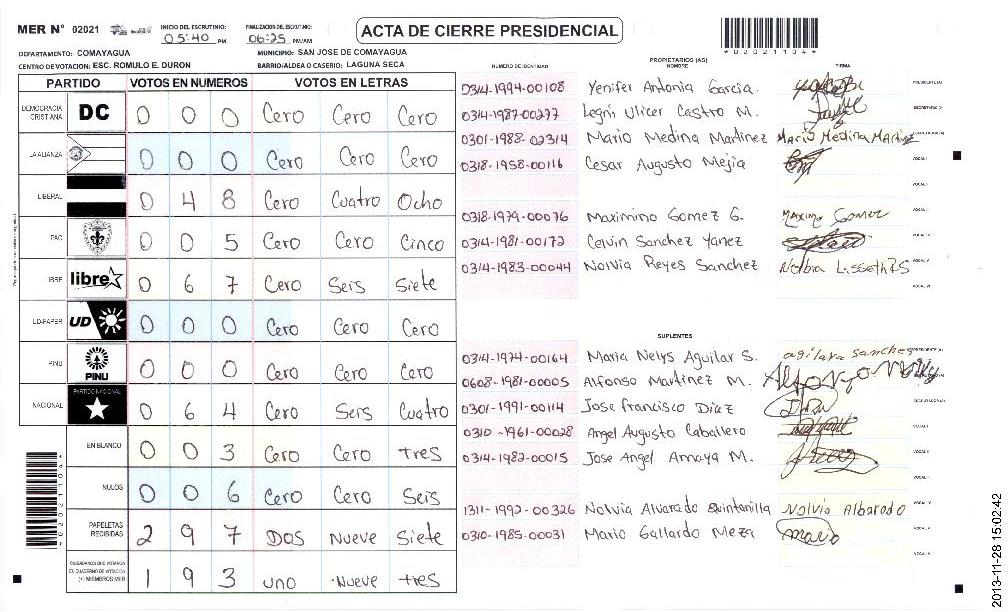 MER N° 02021
INICIO DEL ESCRUTINIO: 05:40 PM
FINALIZACION DEL ESCRUTINIO: 06:25 PM/AM
ACTA DE CIERRE PRESIDENCIAL
*02021104*
DEPARTAMENTO: COMAYAGUA
MUNICIPIO: SAN JOSE DE COMAYAGUA
CENTRO DE VOTACION: ESC. ROMULO E. DURON
BARRIO/ALDEA O CASERIO: LAGUNA SECA
PARTIDO VOTOS EN NUMEROS VOTOS EN LETRAS
DEMOCRACIA CRISTIANA DC 0 0 0 Cero Cero Cero
LA ALIANZA 0 0 0 Cero Cero Cero
LIBERAL 0 4 8 Cero Cuatro Ocho
PAC 0 0 5 Cero Cero Cinco
LIBRE libre 0 6 7 Cero Seis Siete
UD-FAPER UD 0 0 0 Cero Cero Cero
PINU PINU 0 0 0 Cero Cero Cero
NACIONAL PARTIDO NACIONAL 0 6 4 Cero Seis Cuatro
EN BLANCO 0 0 3 Cero Cero tres
NULOS 0 0 6 Cero Cero Seis
PAPELETAS RECIBIDAS 2 9 7 DOS Nueve Siete
CIUDADANOS QUE VOTARON EN CUADERNO DE VOTACION (+) MIEMBROS MER 1 9 3 uno Nueve tres
NUMERO DE IDENTIDAD PROPIETARIOS (AS) NOMBRE FIRMA
0314-1994-00108 Yenifer Antonia Garcia. PRESIDENTE (A)
0314-1987-00277 Legni Ulicer Castro M. SECRETARIO (A)
0301-1988-02314 Mario Medina Martinez Mario Medina Martinez
0318-1958-00116 Cesar Augusto Mejia VOCAL I
0318-1979-00076 Maximino Gomez G. Maximo Gomez
0314-1981-00172 Celvin Sanchez Yanez
0314-1983-00044 Nolvia Reyes Sanchez
SUPLENTES
0314-1974-00164 Maria Nelys Aguilar S. PRESIDENTE (A)
0608-1981-00005 Alfonso Martinez M.
0301-1991-00114 Jose Francisco Diaz
0310-1961-00028 Angel Augusto Caballero VOCAL I
0314-1982-00015 Jose Angel Amaya M.
1311-1992-00326 Nolvia Alvarado Quintanilla Nolvia Albarado
0310-1985-00031 Mario Gallardo Meza mario
2013-11-28 15:02:42